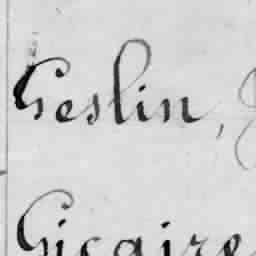 Geslin,
Gicaire